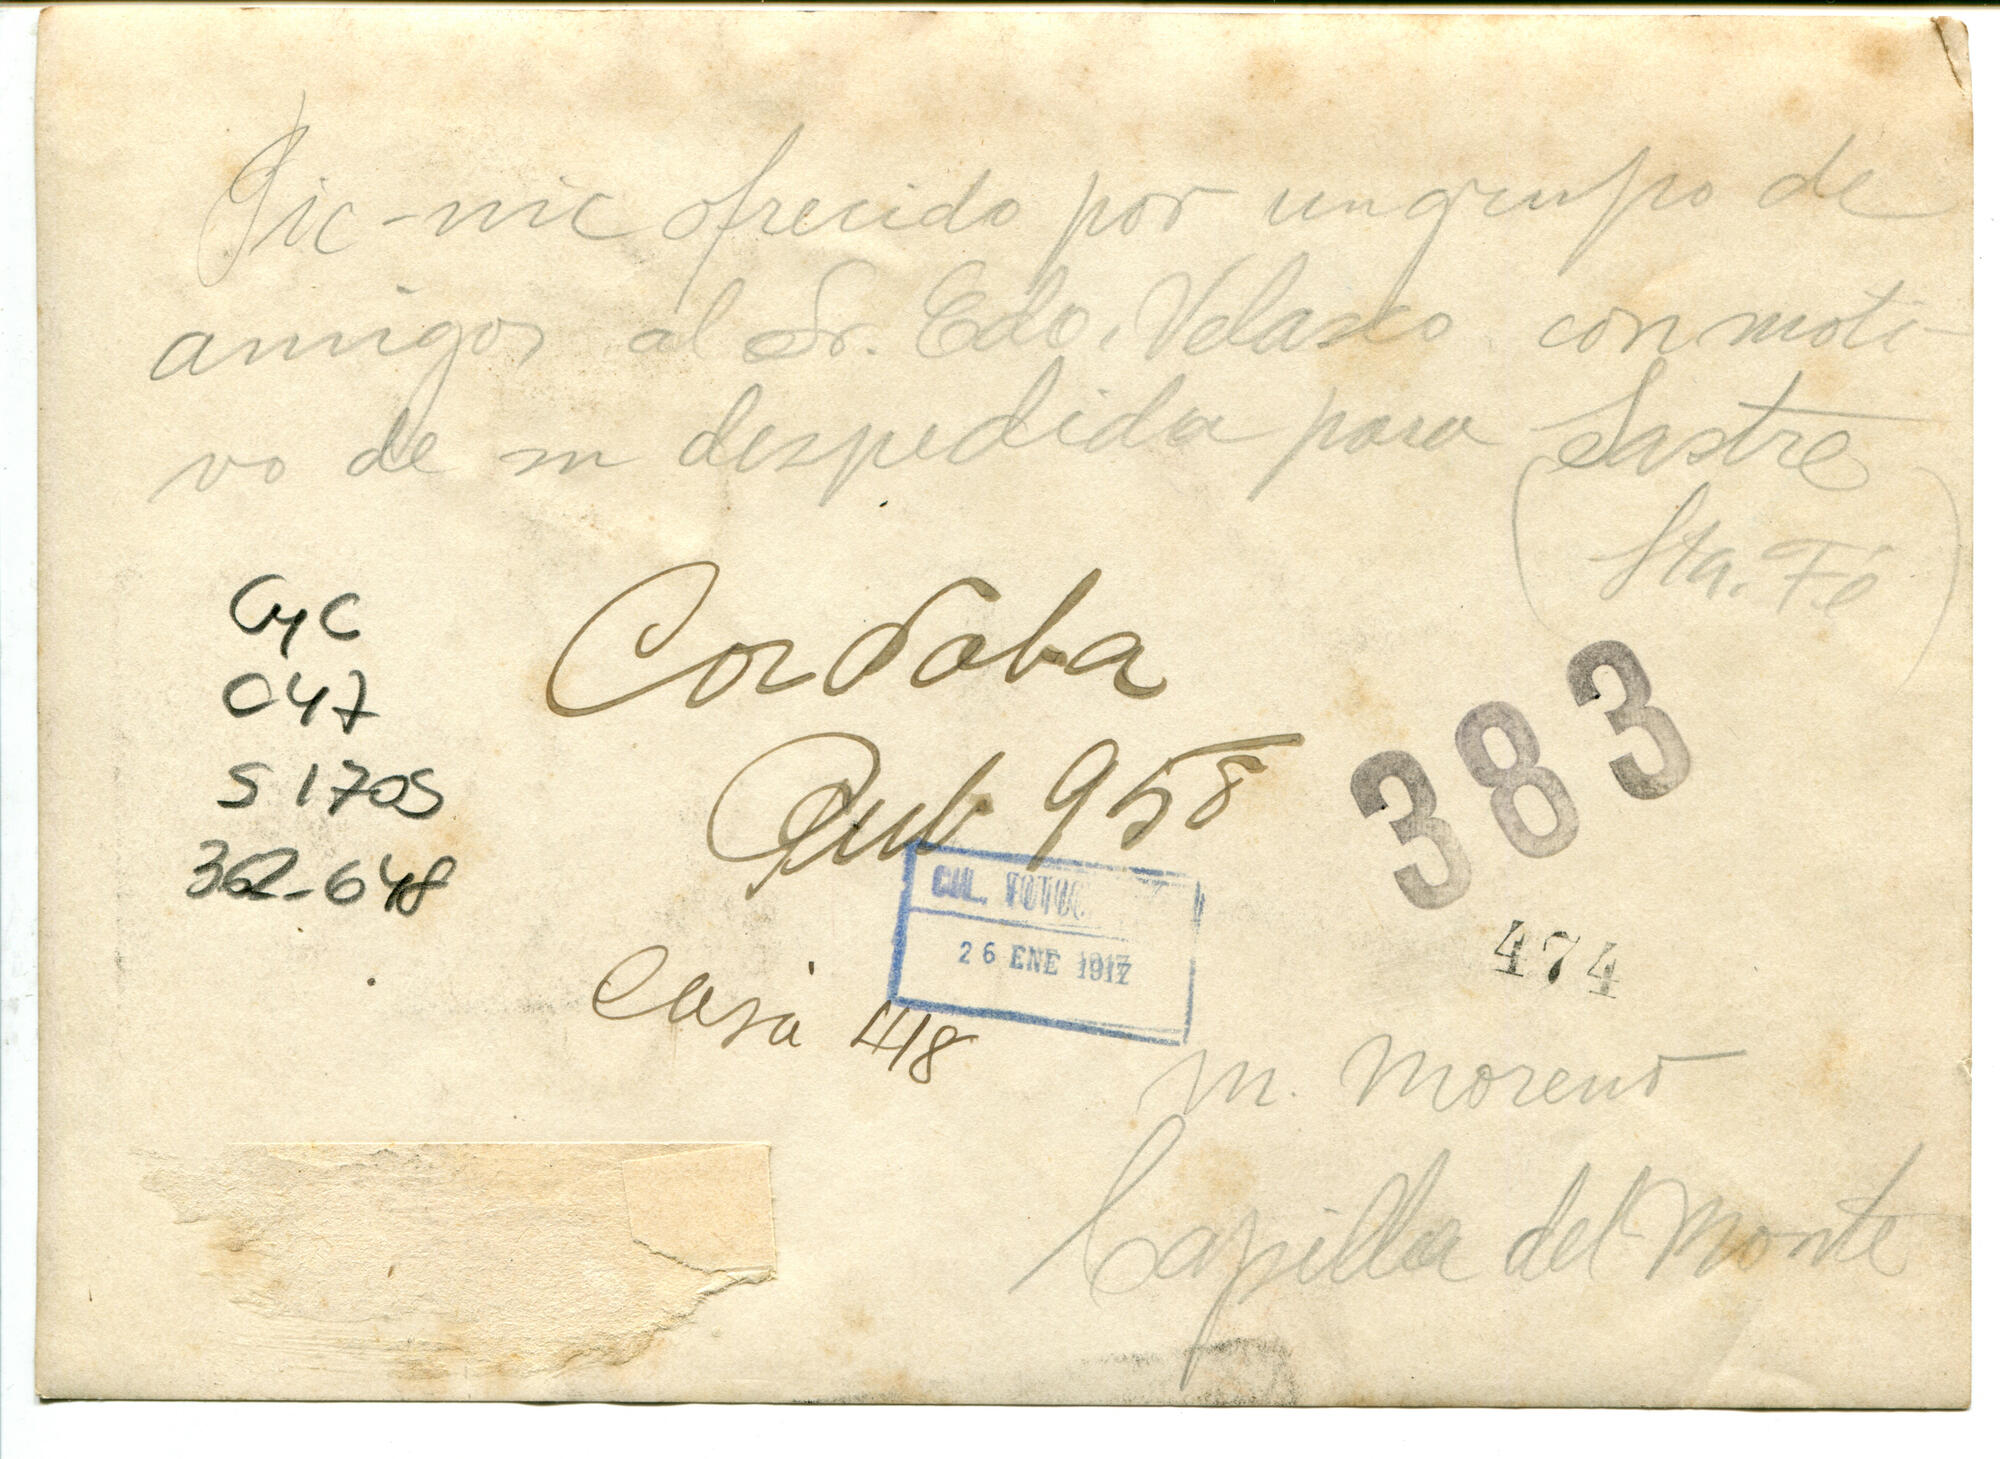 Pic-nic ofrecido por un grupo de
amigos al Sr. Edo. Velasco con moti-
vo de su despedida para Sastre
(Sta. Fé)
CyC
047
S 1705
362-648
Cordoba
Pub 958
383
COL. FOTOG
26 ENE 1917
474
Casa 418
M. Moreno
Capilla del Monte